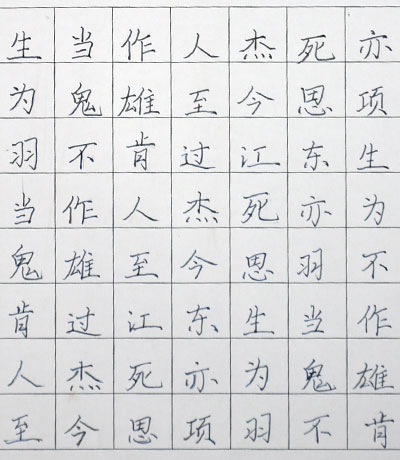 生当作人杰死亦
为鬼雄至今思项
羽不肯过江东生
当作人杰死亦为
鬼雄至今思羽不
肯过江东生当作
人杰死亦为鬼雄
至今思项羽不肯